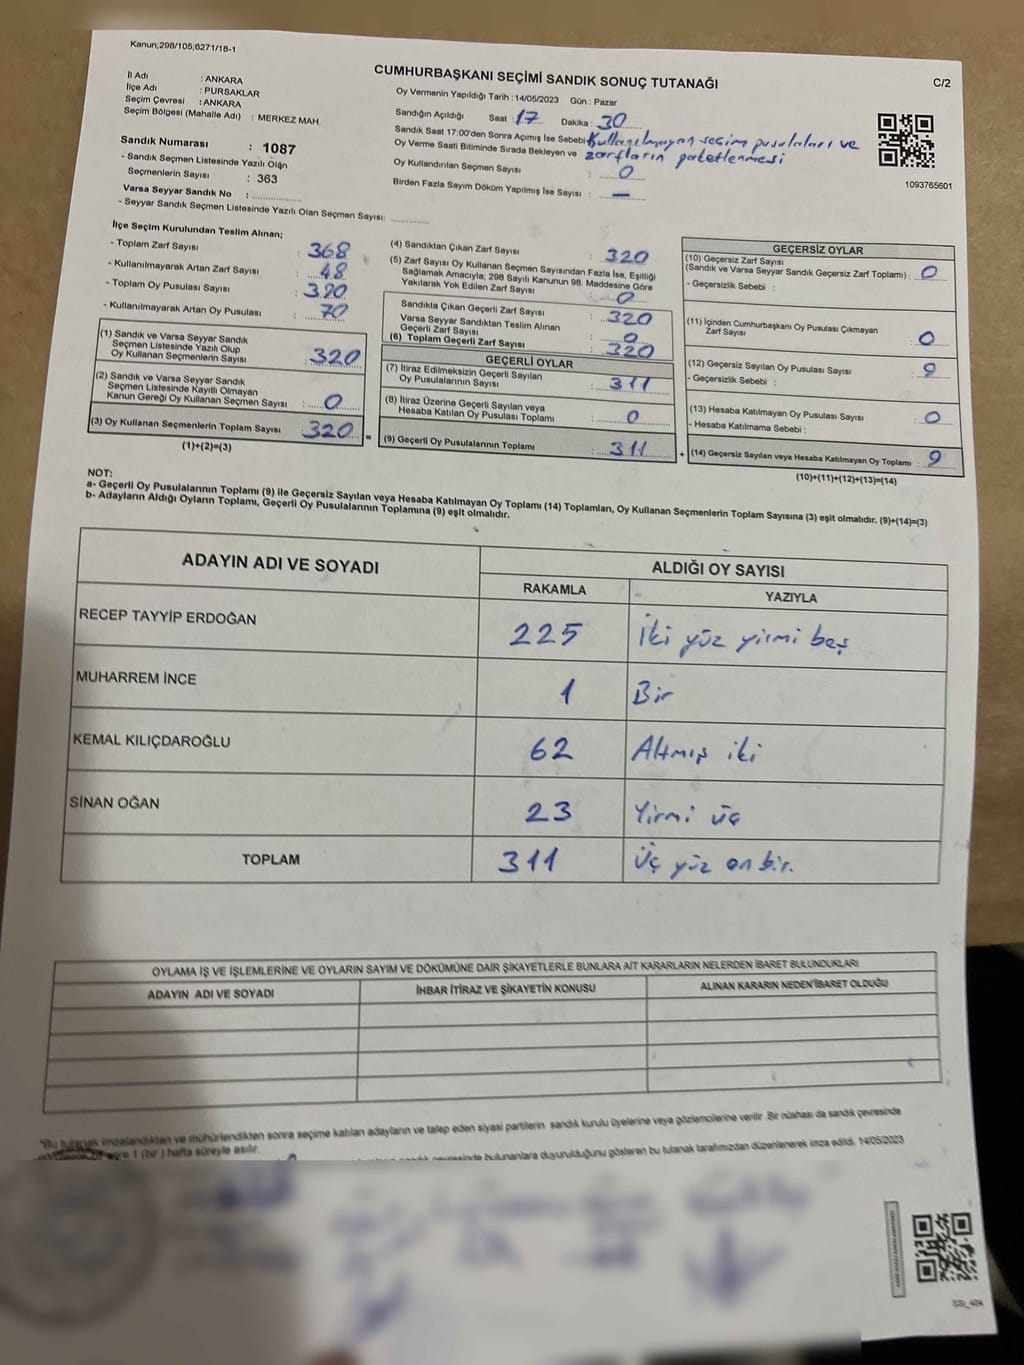 Kanun;298/105;6271/18-1
CUMHURBAŞKANI SEÇİMİ SANDIK SONUÇ TUTANAĞI
C/2
İl Adı : ANKARA
İlçe Adı : PURSAKLAR
Seçim Çevresi : ANKARA
Seçim Bölgesi (Mahalle Adı) : MERKEZ MAH.
Sandık Numarası : 1087
- Sandık Seçmen Listesinde Yazılı Olan
Seçmenlerin Sayısı : 363
Varsa Seyyar Sandık No :
- Seyyar Sandık Seçmen Listesinde Yazılı Olan Seçmen Sayısı:
Oy Vermenin Yapıldığı Tarih : 14/05/2023 Gün : Pazar
Sandığın Açıldığı Saat : 17 Dakika : 30
Sandık Saat 17:00'den Sonra Açımış İse Sebebi Kullanılmayan seçim pusulaları ve
Oy Verme Saati Bitiminde Sırada Bekleyen ve zarfların paketlenmesi
Oy Kullandırılan Seçmen Sayısı : 0
Birden Fazla Sayım Döküm Yapılmış İse Sayısı : —
1093765601
İlçe Seçim Kurulundan Teslim Alınan;
- Toplam Zarf Sayısı : 368
- Kullanılmayarak Artan Zarf Sayısı : 48
- Toplam Oy Pusulası Sayısı : 390
- Kullanılmayarak Artan Oy Pusulası : 70
(1) Sandık ve Varsa Seyyar Sandık
Seçmen Listesinde Yazılı Olup
Oy Kullanan Seçmenlerin Sayısı : 320
(2) Sandık ve Varsa Seyyar Sandık
Seçmen Listesinde Kayıtlı Olmayan
Kanun Gereği Oy Kullanan Seçmen Sayısı : 0
(3) Oy Kullanan Seçmenlerin Toplam Sayısı : 320
(1)+(2)=(3)
(4) Sandıktan Çıkan Zarf Sayısı : 320
(5) Zarf Sayısı Oy Kullanan Seçmen Sayısından Fazla İse, Eşitliği
Sağlamak Amacıyla; 298 Sayılı Kanunun 98. Maddesine Göre
Yakılarak Yok Edilen Zarf Sayısı : 0
Sandıkta Çıkan Geçerli Zarf Sayısı : 320
Varsa Seyyar Sandıktan Teslim Alınan
Geçerli Zarf Sayısı : 0
(6) Toplam Geçerli Zarf Sayısı : 320
GEÇERLİ OYLAR
(7) İtiraz Edilmeksizin Geçerli Sayılan
Oy Pusulalarının Sayısı : 311
(8) İtiraz Üzerine Geçerli Sayılan veya
Hesaba Katılan Oy Pusulası Toplamı : 0
= (9) Geçerli Oy Pusulalarının Toplamı : 311
GEÇERSİZ OYLAR
(10) Geçersiz Zarf Sayısı
(Sandık ve Varsa Seyyar Sandık Geçersiz Zarf Toplamı) : 0
- Geçersizlik Sebebi :
(11) İçinden Cumhurbaşkanı Oy Pusulası Çıkmayan
Zarf Sayısı : 0
(12) Geçersiz Sayılan Oy Pusulası Sayısı : 9
- Geçersizlik Sebebi :
(13) Hesaba Katılmayan Oy Pusulası Sayısı : 0
- Hesaba Katılmama Sebebi :
+ (14) Geçersiz Sayılan veya Hesaba Katılmayan Oy Toplamı : 9
(10)+(11)+(12)+(13)=(14)
NOT:
a- Geçerli Oy Pusulalarının Toplamı (9) ile Geçersiz Sayılan veya Hesaba Katılmayan Oy Toplamı (14) Toplamları, Oy Kullanan Seçmenlerin Toplam Sayısına (3) eşit olmalıdır. (9)+(14)=(3)
b- Adayların Aldığı Oyların Toplamı, Geçerli Oy Pusulalarının Toplamına (9) eşit olmalıdır.
ADAYIN ADI VE SOYADI ALDIĞI OY SAYISI
RAKAMLA YAZIYLA
RECEP TAYYİP ERDOĞAN 225 İki yüz yirmi beş
MUHARREM İNCE 1 Bir
KEMAL KILIÇDAROĞLU 62 Altmış iki
SİNAN OĞAN 23 Yirmi üç
TOPLAM 311 Üç yüz on bir.
OYLAMA İŞ VE İŞLEMLERİNE VE OYLARIN SAYIM VE DÖKÜMÜNE DAİR ŞİKAYETLERLE BUNLARA AİT KARARLARIN NELERDEN İBARET BULUNDUKLARI
ADAYIN ADI VE SOYADI İHBAR İTİRAZ VE ŞİKAYETİN KONUSU ALINAN KARARIN NEDEN İBARET OLDUĞU
"Bu tutanak imzalandıktan ve mühürlendikten sonra seçime katılan adayların ve talep eden siyasi partilerin sandık kurulu üyelerine veya gözlemcilerine verilir. Bir nüshası da sandık çevresinde
göre 1 (bir ) hafta süreyle asılır.
sandık çevresinde bulunanlara duyurulduğunu gösteren bu tutanak tarafımızdan düzenlenerek imza edildi. 14/05/2023